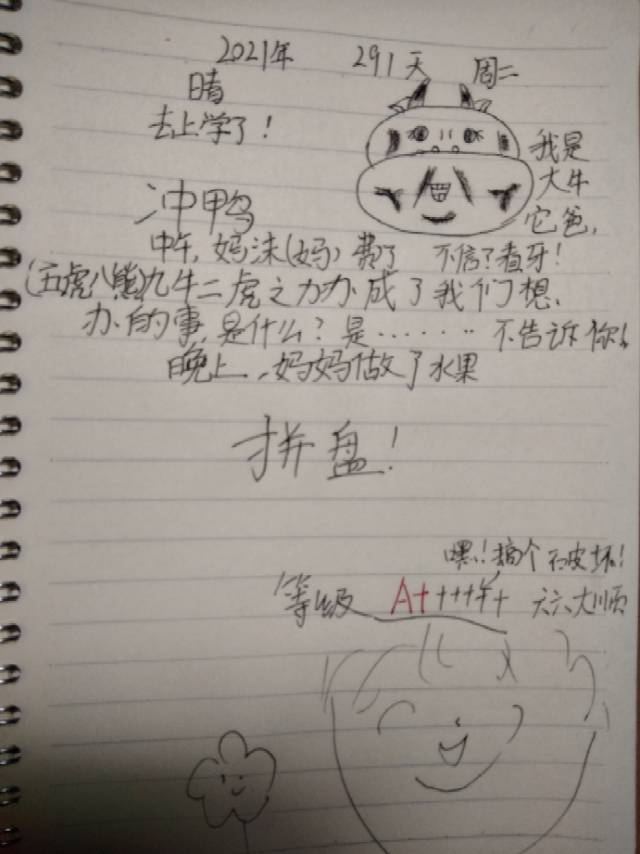 2021年 291天 周二
晴
去上学了!
我是
大牛
它爸,
冲鸭
中午,妈沫(妈)费了 不信了着牙!
(五虎八熊)九牛二虎之力办成了我们想,
办的事,是什么?是........不告诉你!
晚上,,妈妈做了水果
拼盘!
嘿!搞个破坏!
等级 A++++++ 六六大顺